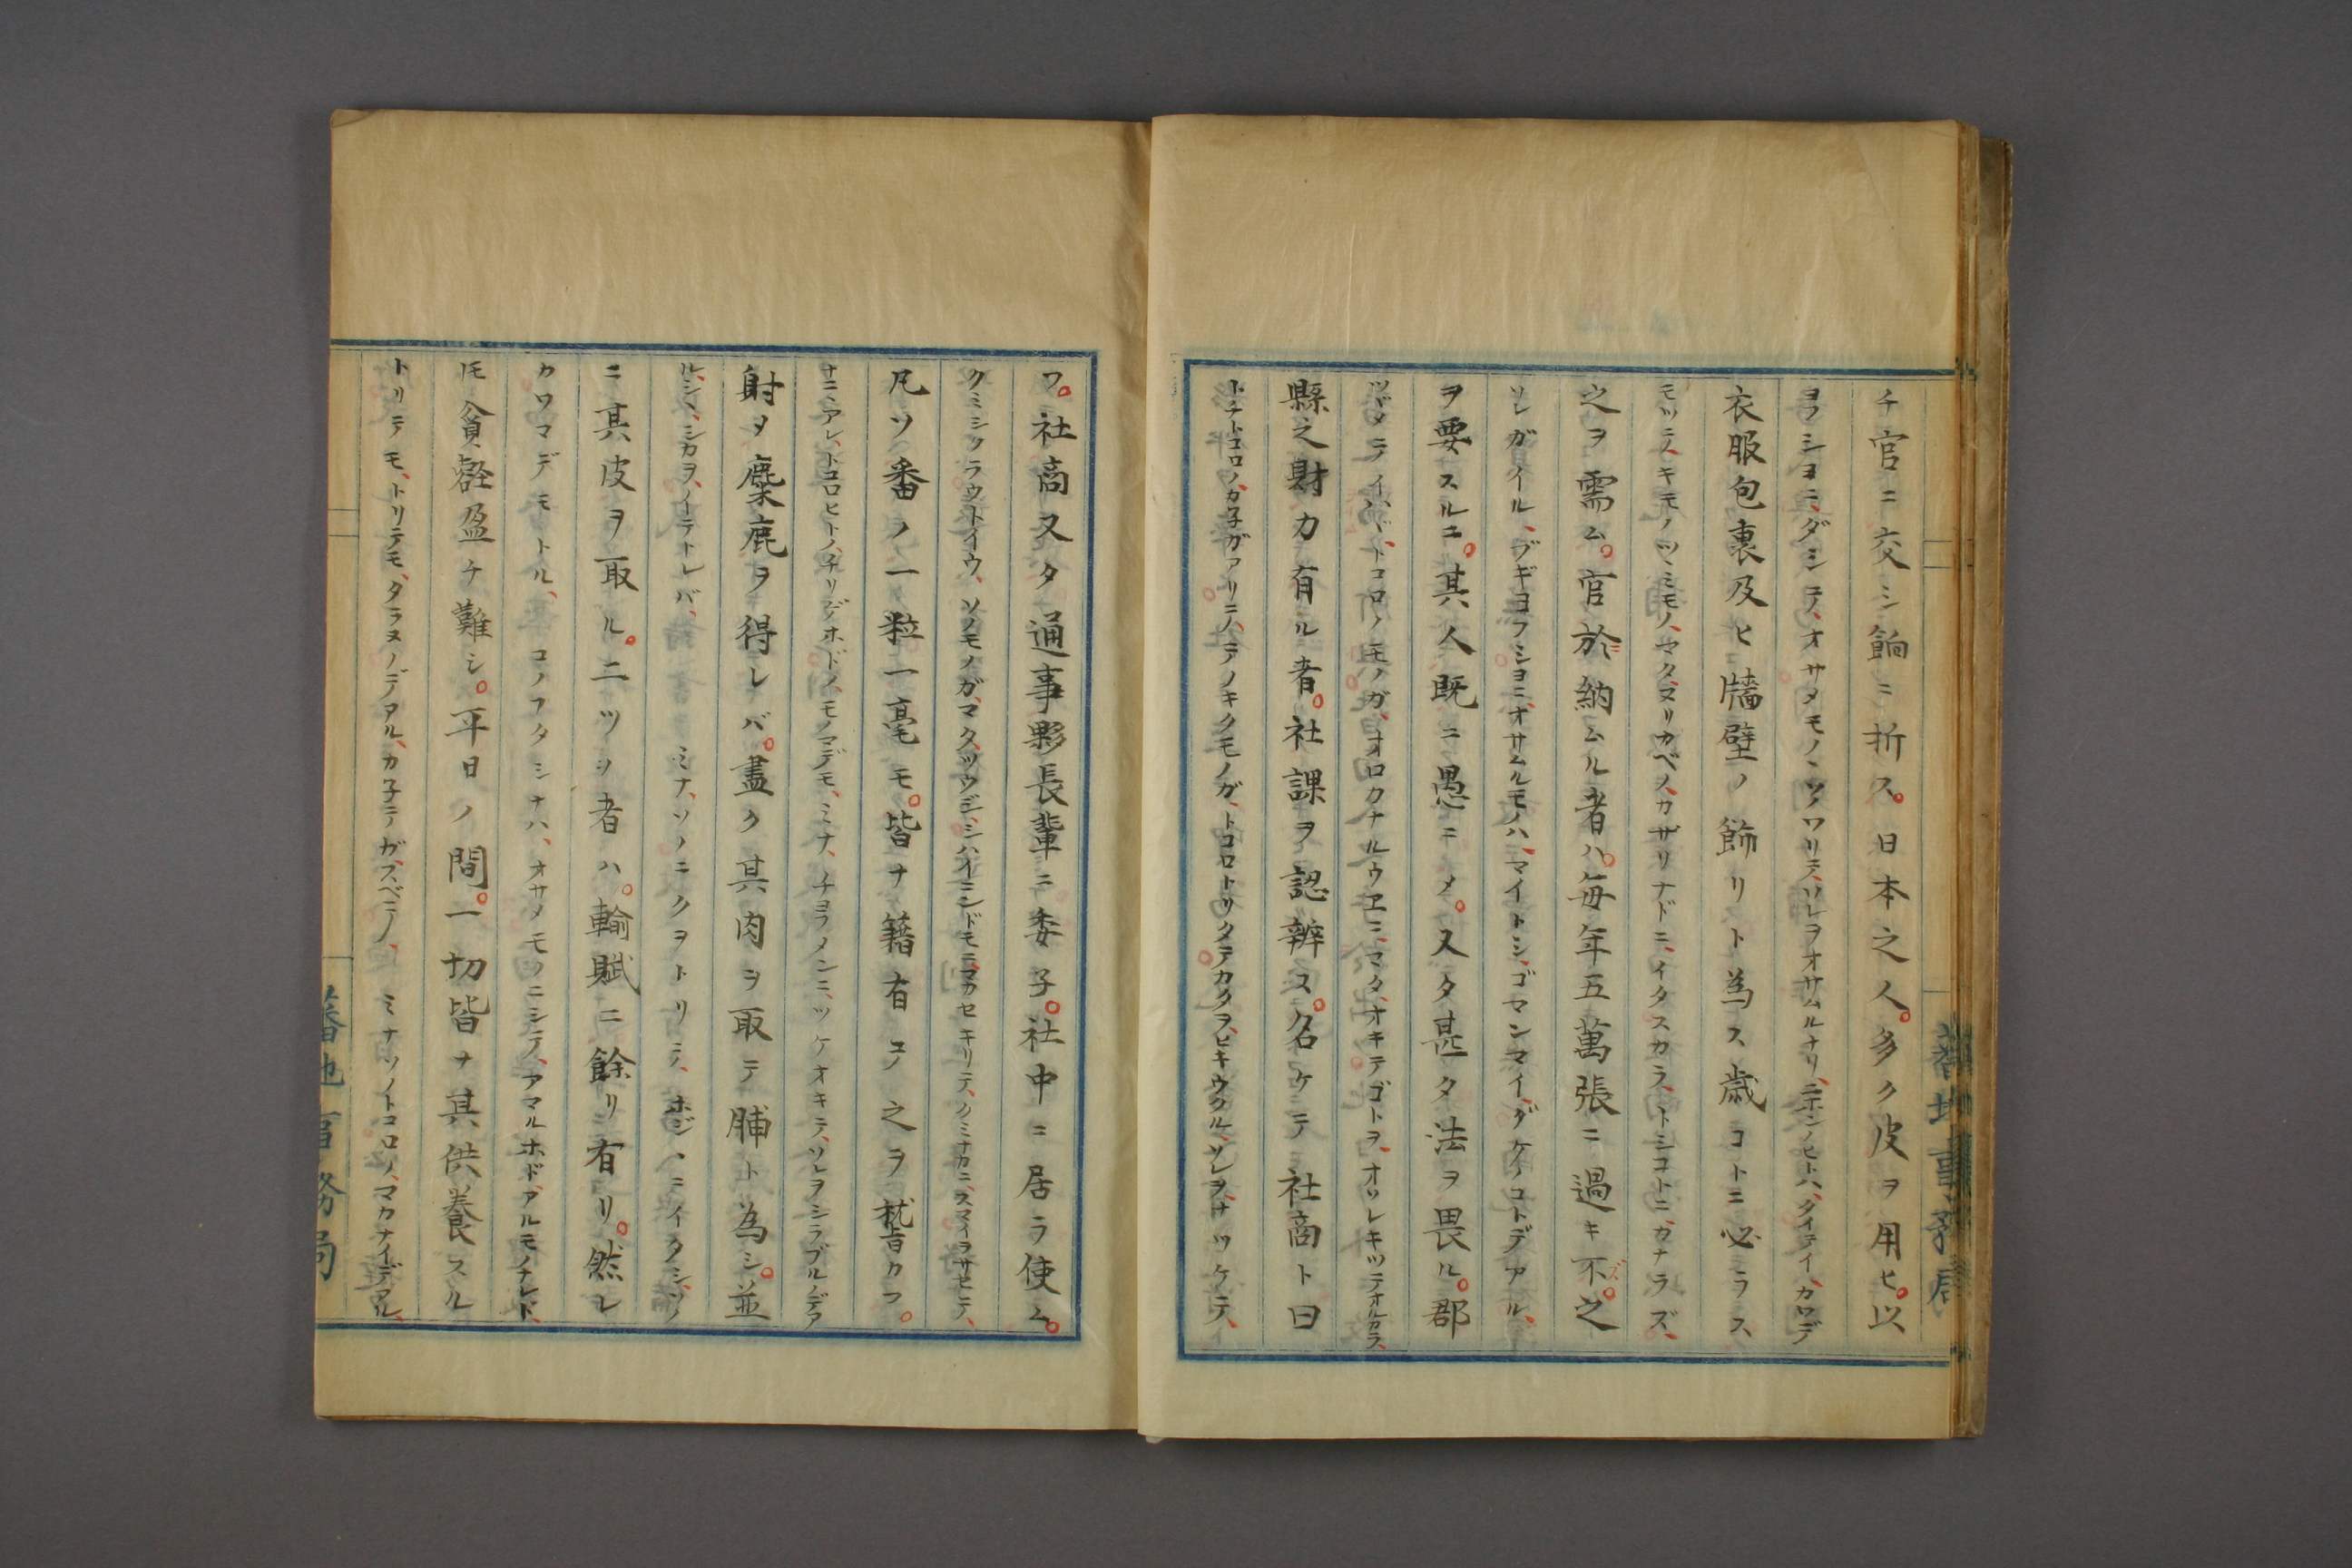 チ官ニ交シ餉ニ折ス。日本之人。多ク皮ヲ用ヒ。以
ヨフシヨニ、ダシテ、オサメモノヽツノワリテ、ソレヲオサムルナリ、ニホンノヒトハ、タイテイ、カワデ
衣服包裏及ヒ牆壁ノ飾リト為ス歳コトニ必ラス
モツニノキモノツヽミモノ、マタ、ヌリカベノ、カザリナドニ、イタスカラ、トシコトニ、カナラズ、
之ヲ需ム。官於納ムル者ハ。毎年五萬張ニ過キ不。之
ソレガイル、ブギヨフシヨニ、オサムルモノハ、マイトシ、ゴマンマイ、ダケノコトデアル、
ヲ要スルニ。其人既ニ愚ニメ。又タ甚タ法ヲ畏ル。郡
ツヾメテイヘバ、トコロノモノガ、オロカナルウエニ、マタ、オキテゴトヲ、オソレキツテオルカラ、
縣之財力有ル者。社課ヲ認辨ス。名ケテ社商ト曰
トチトコロノ、カ子ガアリテ、テノキクモノガ、トコロトリタテカタヲ、ヒキウケル、ソレヲ、ナツケテ、
ワ。社商又タ通事夥長輩ニ委子。社中ニ居ラ使ム。
クミシクラウトイウ、ソノモノガ、マタ、ツウジ、シハイニンドモニ、マカセキリテ、クミナカニ、スマイラサセテ、
凡ソ番ノ一粒一毫モ。皆ナ籍有コテ之ヲ嵆カフ。
ナニヽアレ、トコロヒトノ、チリヂホドノ、モノマデモ、ミナ、チヨフメンニ、ツケオキテ、ソレヲシラブルノデア
射ヲ麋鹿ヲ得レバ。盡ク其肉ヲ取テ脯ト為シ。並
ル、シヽ、シカヲ、イテトレバ、ミナ、ソノニクヲトリテ、ホジヽニイタシ、ソノ
ニ其皮ヲ取ル。二ツヲ者ハ。輸賦ニ餘リ有リ。然レ
カワマデモトル、コノフタシナハ、オサメモノニシテ、アマルホド、アルモノナレド、
𪜈貪壑盈チ難シ。平日ノ間。一切皆ナ其供養スル
トリテモ、トリテモ、タラヌノデアル、カ子テガ、スベテノ、ミナソノトコロノ、マカナイデアル、
蕃地事務局
蕃地事務局